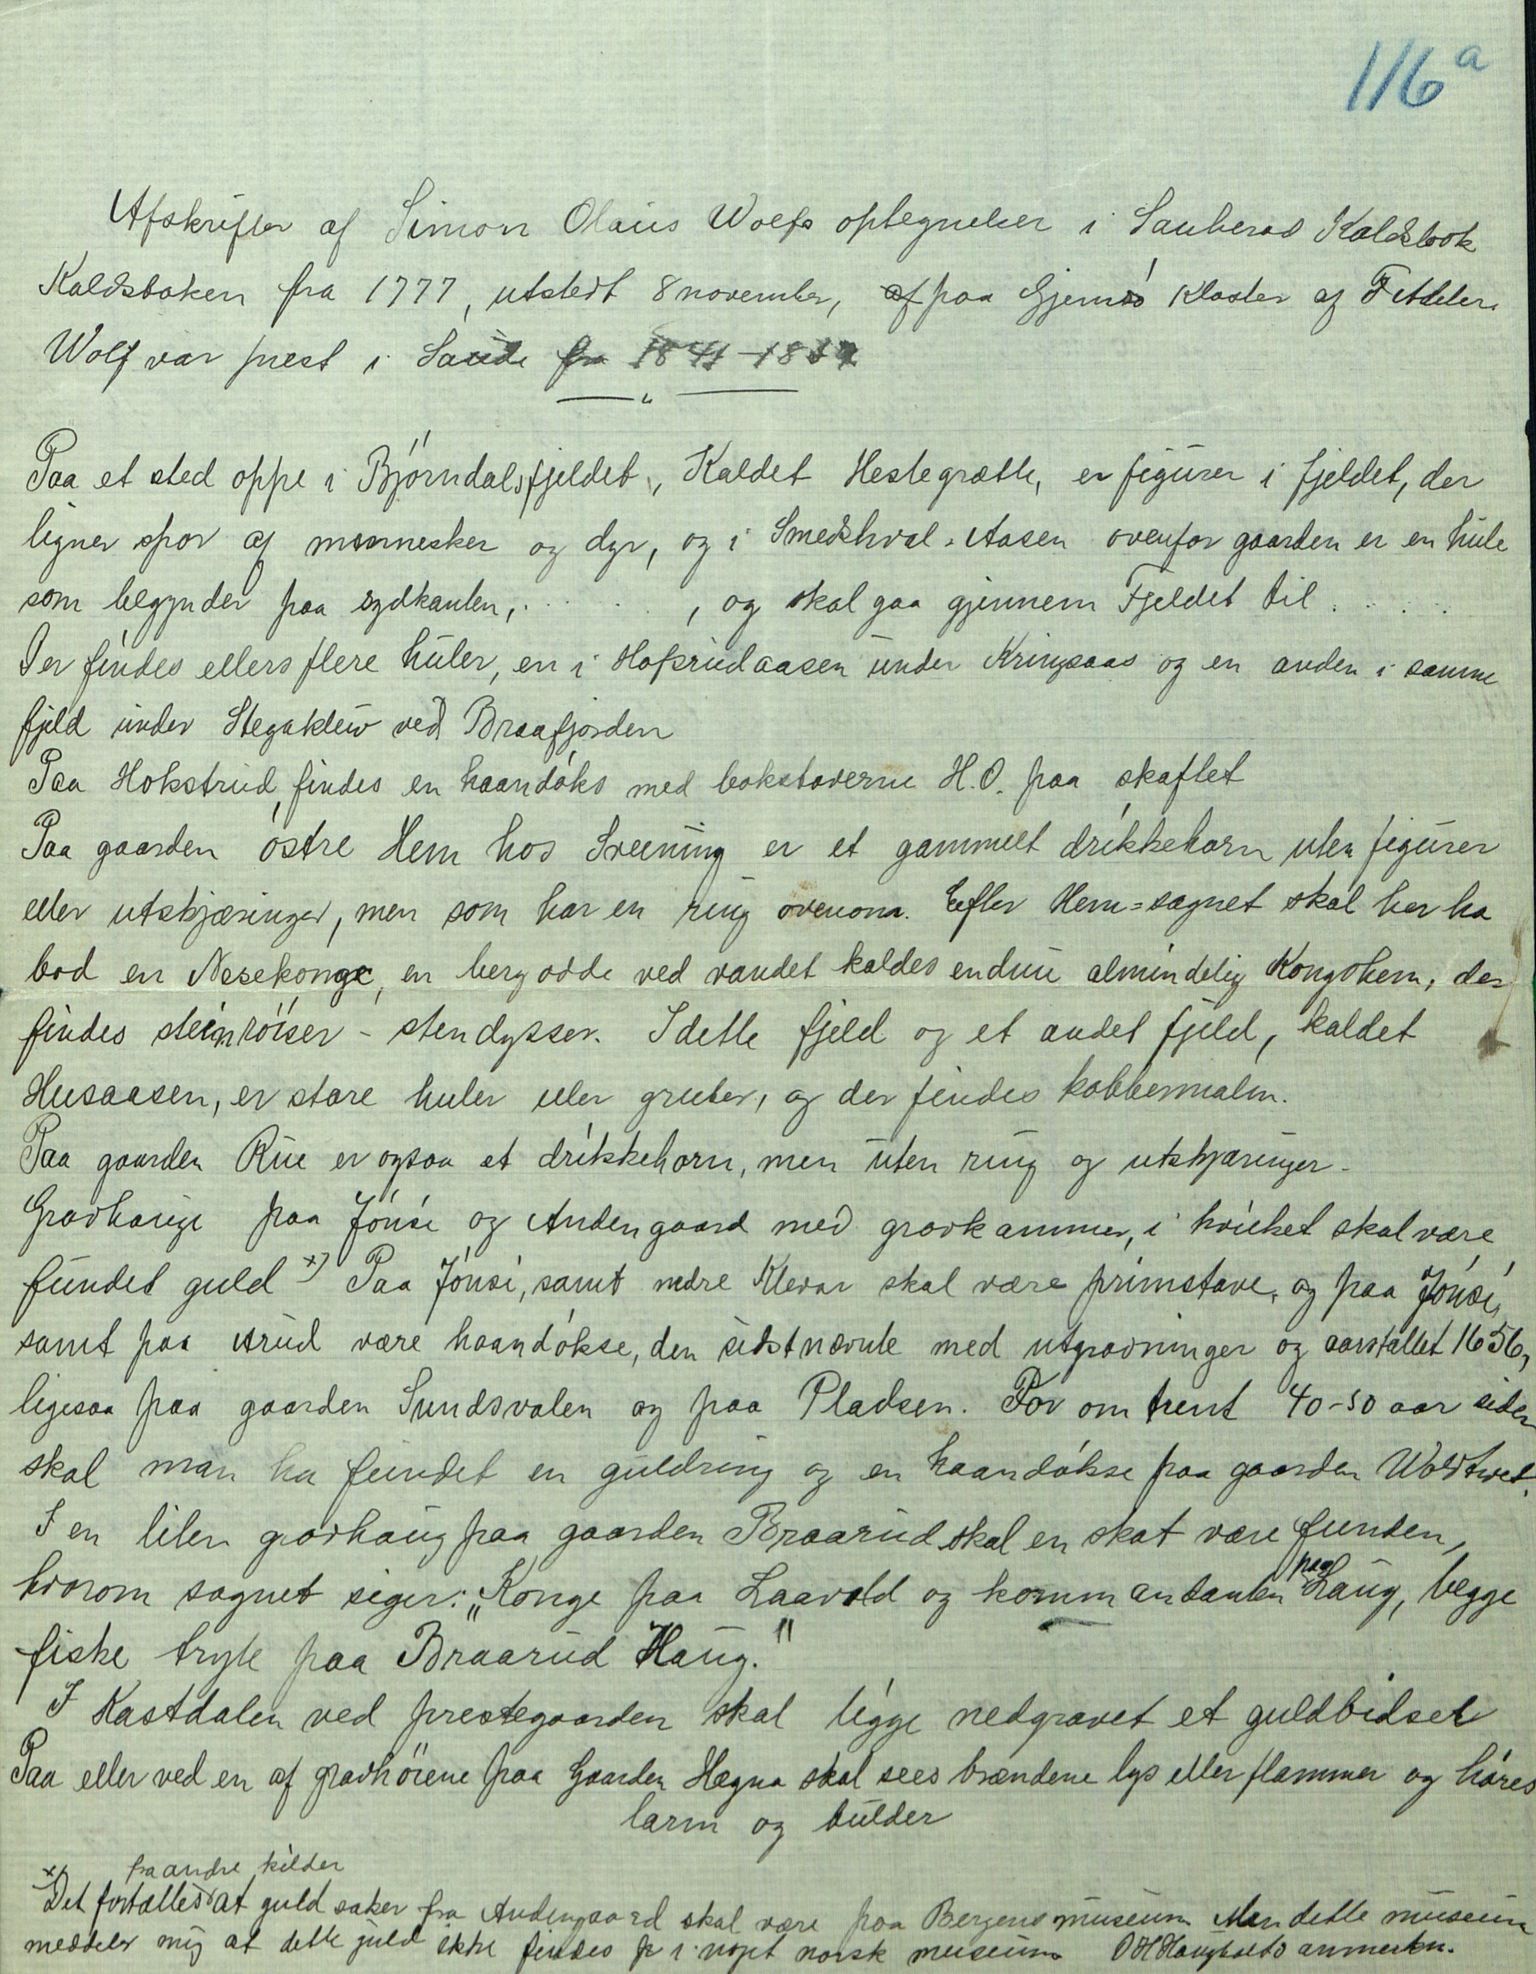 116a
Afskrifter af Simon Olaus Wolfs optegnelser i Sauherad Kaldsbok
Kaldsboken fra 1777, utstedt 8 november, af paa Gjemsö Kloster af
Wolf var prest i Saude fra
Paa et sted oppe i Björndalsfjeldet, Kaldet Hestegrætte, er figurer i fjeldet, der
ligner spor af mennesker og dyr, og i Smedshval-Aasen ovenfor gaarden er en hule
som begynder paa sydkanten, . . . . . . , og skal gaa gjennem Fjeldet til . . . . .
Der findes ellers flere huler, en i Hofsrudaasen under Kringsaas og en anden i samme
fjeld under Stegakleiv ved Braafjorden
Paa Hokstrud findes en haandöks med bokstaverne H.O. paa skaftet
Paa gaarden östre Hem hos Sveinung er et gammelt drikkehorn uten figurer
eller utskjæringer, men som har en ring ovenom. Efter Hem=sagnet skal her ha
bod en Nesekonge, en bergodde ved vandet kaldes endnu almindelig Kongshem, der
findes steinröiser - stendysser. I dette fjeld og et andet fjeld, kaldet
Husaasen, er store huler eller gruber, og der findes kobbermalm.
Paa gaarden Rue er ogsaa et drikkehorn, men uten ring og utskjæringer.
Gravhauge paa Jönsi og Andengaard med gravkammer, i hvilket skal være
fundet guld x) Paa Jönsi, samt nedre Klevar skal være primstave, og paa Jönsi,
samt paa Arud være haandökse, den sidstnævnte med utgravninger og aarstallet 1656,
ligesaa paa gaarden Sundsvalen og paa Pladsen. For omtrent 40-50 aar siden
skal man ha fundet en guldring og en haandökse paa gaarden Woldtvet.
I en liten gravhaug paa gaarden Braarud skal en skat være funden,
hvorom sagnet siger: "Konge paa Laavold og kommandanten paa Haug, begge
fiske tryte paa Braarud Haug."
I Kastdalen ved prestegaarden skal ligge nedgravet et guldbidsel
Paa eller ved en af gravhöiene paa Gaarden Hegna skal sees brændene lys eller flammer og höres
larm og bulder
fra andre kilder
x) Det fortælles at guld saker fra Andengaard skal være paa Bergens museum Men dette museum
meddeler mig at dette guld ikke findes i noget norsk museum O H Haugholts anmerkn.